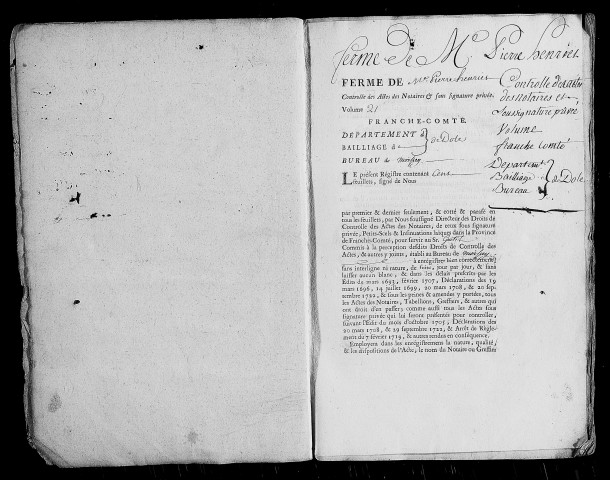 ferme de Mᵉ Pierre henriet
FERME DE Mᵉ Pierre henriet
Controlle des Actes des Notaires & sous signature privée.
Volume 21
FRANCHE-COMTÉ.
DEPARTEMENT d
BAILLIAGE d
de Dole
BUREAU de moissey
LE présent Régistre contenant Cent
feüillets, signé de Nous
Controlle des actes
des Notaires et
sous signature privée
Volume
franche comté
Departemt
Bailliage
de Dole
Bureau
par premier & dernier seulement, & cotté & parafé en
tous les feüillets, par Nous soussigné Directeur des Droits de
Controlle des Actes des Notaires, de ceux sous signature
privée, Petits-Scels & Insinuations laïques dans la Province
de Franche-Comté, pour servir au Sr.
Commis à la perception desdits Droits de Controlle des
Actes, & autres y joints, établi au Bureau de moissey
à enrégistrer bien correctement,
sans interligne ni rature, de suite, jour par jour, & sans
laisser aucun blanc, & dans le délai préfix par les
Edits du mois mars 1693, février 1707, Déclarations des 19
mars 1696, 14 juillet 1699, 20 mars 1708, & 20 sep-
tembre 1722, & sous les peines & amendes y portées, tous
les Actes des Notaires, Tabellions, Greffiers, & autres qui
ont droit d'en passer; comme aussi tous les Actes sous
signature privée qui lui seront présentés pour controller,
suivant l'Edit du mois d'octobre 1705, Déclarations des
20 mars 1708, & 29 septembre 1722, & Arrêt de Règle-
ment du 7 février 1719, & autres rendus en conséquence.
Employera dans les enrégistremens la nature, qualité,
& les dispositions de l'Acte, le nom du Notaire ou Greffier